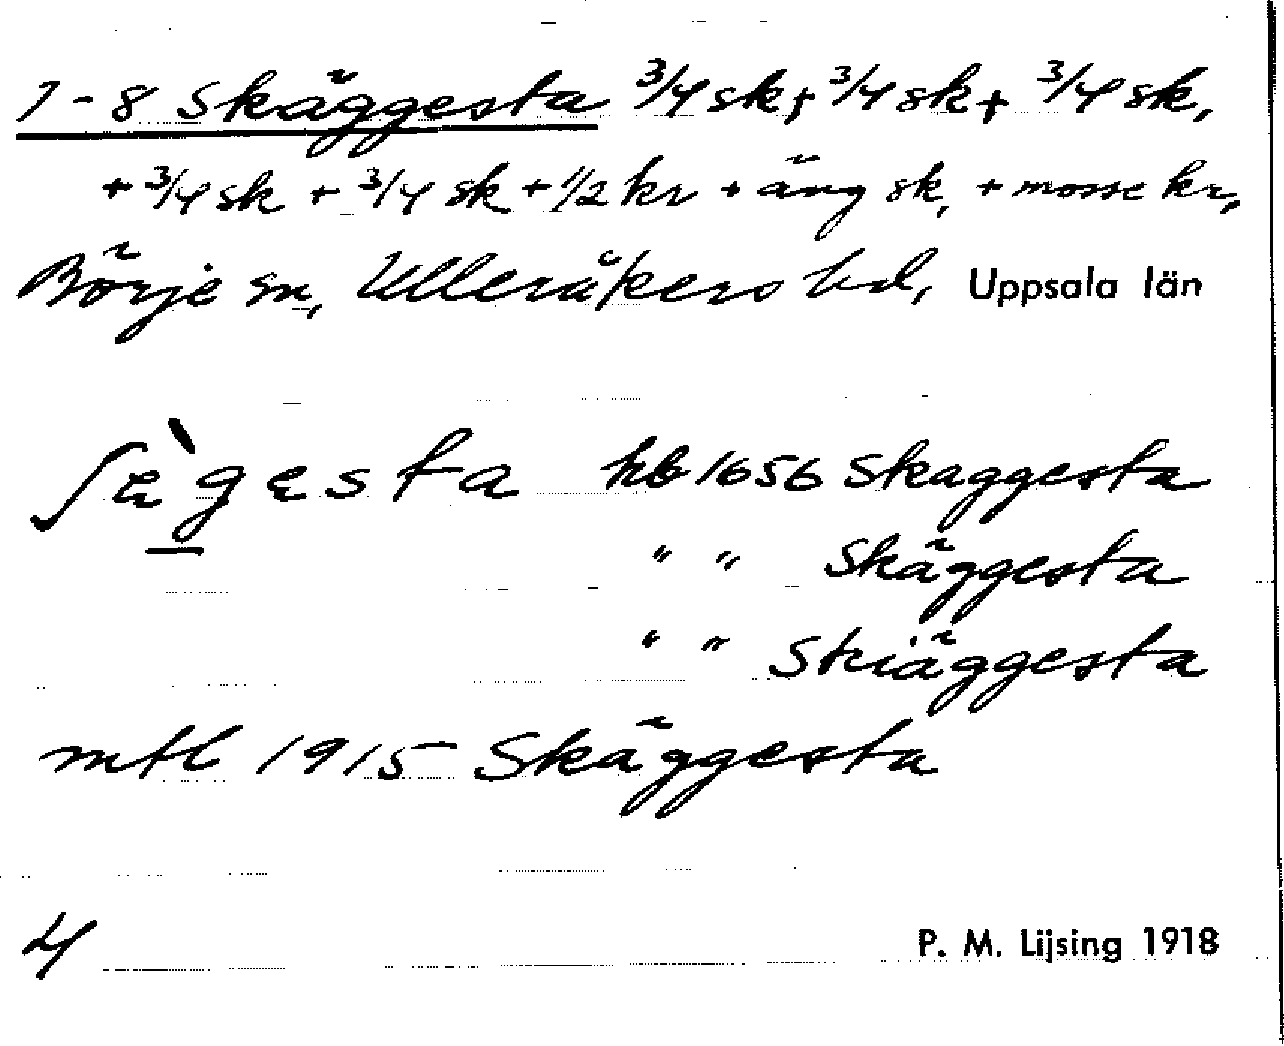 1-8 Skäggesta 3/4 sk, + 3/4 sk + 3/4 sk,
+ 3/4 sk + 3/4 sk + 1/2 kr + äng sk, + mosse kr,
Börje sn, Ulleråkers hd, Uppsala län
ʃɛ̀gesta hb 1656 Skaggesta
" " Skäggesta
" " Skiäggesta
mtl 1915 Skäggesta
4 P. M. Lijsing 1918